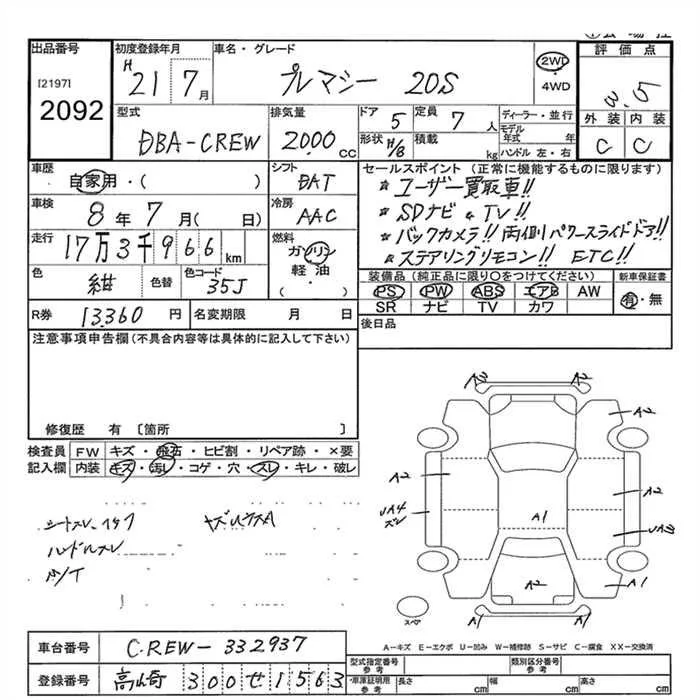 出品番号
[2197]
2092
初度登録年月
H 21 7 月
車名・グレード
プレマシー 20S
2WD
4WD
評価点
3.5
外装 内装
C C
型式
DBA-CREW
排気量
2000 CC
ドア 5
形状 H/B
定員 7 人
積載 kg
ディーラー・並行
モデル年式 年
ハンドル 左・右
車歴
自家用・( )
シフト
DAT
車検
8 年 7 月( 日)
冷房
AAC
走行
17万3千966 km
燃料
ガソリン
軽油
( ・ )
色
紺
色替
色コード
35J
R券 13360 円
名変期限 月 日
セールスポイント(正常に機能するものに限ります)
★ ユーザー買取車!!
★ SDナビ & TV!!
★ バックカメラ!! 両側パワースライドドア!!
★ ステアリングリモコン!! ETC!!
装備品(純正品に限り○をつけてください)
新車保証書
PS PW ABS エアB AW
SR ナビ TV カワ
有・無
後日品
注意事項申告欄(不具合等は具体的に記入して下さい)
修復歴 有 [箇所
検査員記入欄
FW キズ・飛石・ヒビ割・リペア跡・×要
内装 キズ・汚レ・コゲ・穴・スレ・キレ・破レ
ハンドルスレ
A3 A2
A2
A2
A2
UA4
スレ
A1
A2
A1
スペア
A-キズ E-エクボ U-凹み W-補修跡 S-サビ C-腐食 XX-交換済
車台番号 CREW-332937
登録番号 高崎 300せ1563
型式指定番号 参考
類別区分番号 参考
車庫証明用 参考
長さ cm 幅 cm 高さ cm